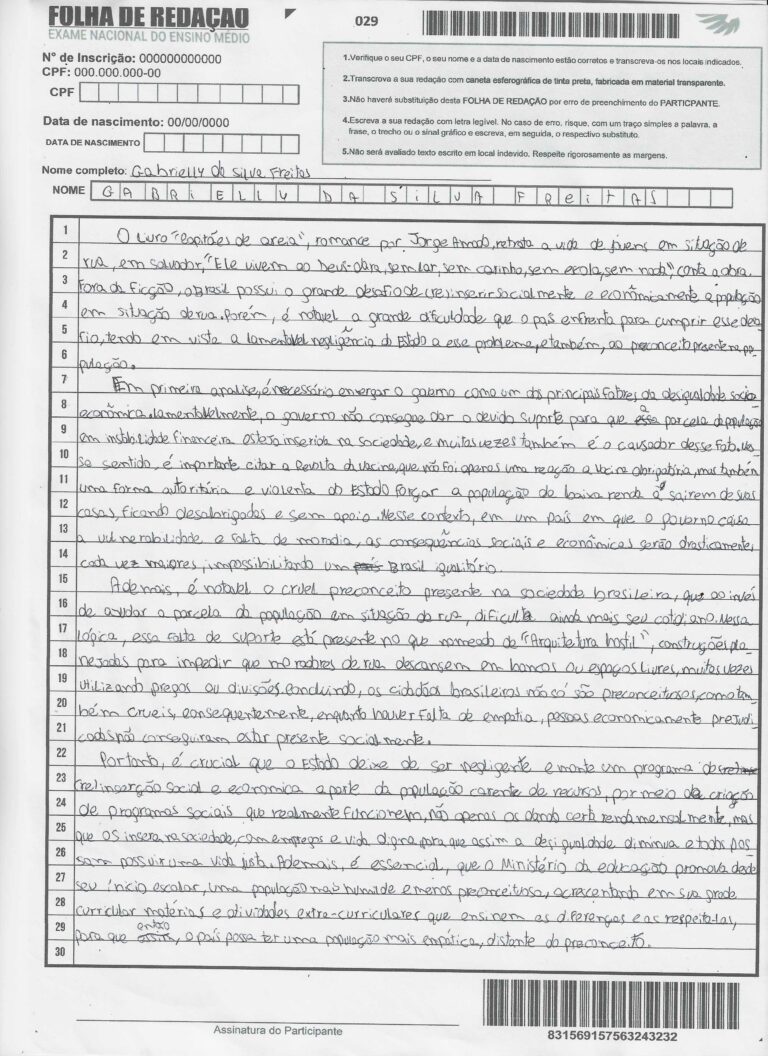 FOLHA DE REDAÇÃO
EXAME NACIONAL DO ENSINO MÉDIO
029
Nº de Inscrição: 000000000000
CPF: 000.000.000-00
CPF
Data de nascimento: 00/00/0000
DATA DE NASCIMENTO
1.Verifique o seu CPF, o seu nome e a data de nascimento estão corretos e transcreva-os nos locais indicados.
2.Transcrova a sua redação com caneta esferográfica de tinta preta, fabricada em material transparente.
3.Não haverá substituição desta FOLHA DE REDAÇÃO por erro de preenchimento do PARTICPANTE.
4.Escreva a sua redação com letra legível. No caso de erro, risque, com um traço simples a palavra, a
frase, o trecho ou o sinal gráfico e escreva, em seguida, o respectivo substituto.
5.Não será avaliado texto escrito em local indevido. Respeite rigorosamente as margens.
Nome completo: Gabrielly da Silva Freitas
NOME GABRIELLY DA SILVA FREITAS
1 O livro "Capitães de areia", romance por Jorge Amado, retrata a vida de jovens em situação de
2 rua, em salvador, "Ele vivem ao Deus-dara, sem lar, sem carinho, sem escola, sem nada", conta a obra.
3 Fora da ficção, o Brasil possui o grande desafio de (re)inserir socialmente e economicamente a população
4 em situação de rua. Porém, é notavel a grande dificuldade que o país enfrenta para cumprir esse desa-
5 fio, tendo em vista a lamentável negligência do Estado a esse problema, e também, ao preconceito presente na po-
6 pulação.
7 Em primeira analise, é necessário enxergar o governo como um dos principais fatores da desigualdade socio
8 econômica. Lamentavelmente, o governo não consegue dar o devido suporte para que essa a parcela da população
9 em instabilidade financeira esteja inserida na sociedade, e muitas vezes também é o causador desse fato. Nes-
10 se sentido, é importante citar a Revolta da Vacina, que não foi apenas uma reação a vacina obrigatória, mas também
11 uma forma autoritária e violenta do Estado forçar a população de baixa renda a sairem de suas
12 casas, ficando desabrigados e sem apoio. Nesse contexto, em um país em que o governo causa
13 a vulnerabilidade e falta de moradia, as consequências sociais e econômicas serão drasticamente,
14 cada vez maiores, impossibilitando um país Brasil igualitário.
15 Ademais, é notavel o cruel preconceito presente na sociedade brasileira, que ao invés
16 de ajudar a parcela da população em situação de rua, dificulta ainda mais seu cotidiano. Nessa
17 lógica, essa falta de suporte está presente no que nomeado de "Arquitetura Hostil", construções pla-
18 nejadas para impedir que moradores de rua descansem em bancos ou espaços livres, muitas vezes
19 utilizando pregos ou divisões. Concluindo, os cidadãos brasileiros não só são preconceituosos, como tam-
20 bém crueis, consequentemente, enquanto houver falta de empatia, pessoas economicamente prejudi-
21 cadas não conseguiram estar presente socialmente.
22 Portanto, é crucial que o Estado deixe de ser negligente e monte um programa de
23 (re)inserção social e economica a parte da população carente de recursos, por meio da criação
24 de programas sociais que realmente funcionem, não apenas os dando certa renda mensalmente, mas
25 que os insera na sociedade, com empregos e vida digna para que assim a desigualdade diminua e todos pos-
26 sam possuir uma vida justa. Ademais, é essencial, que o Ministério da educação promova desde
27 seu ínicio escolar, uma população mais humilde e menos preconceituosa, acrescentando em sua grade
28 curricular matérias e atividades extra-curriculares que ensinem as diferenças e as respeita-las,
29 para que assim, então o país possa ter uma população mais empática, distante do preconceito.
30
Assinatura do Participante
831569157563243232